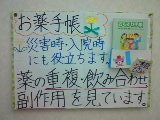 お薬手帳
災害時・入院時
にも役立ちます。
薬の重複・飲み合わせ
副作用を見ています。